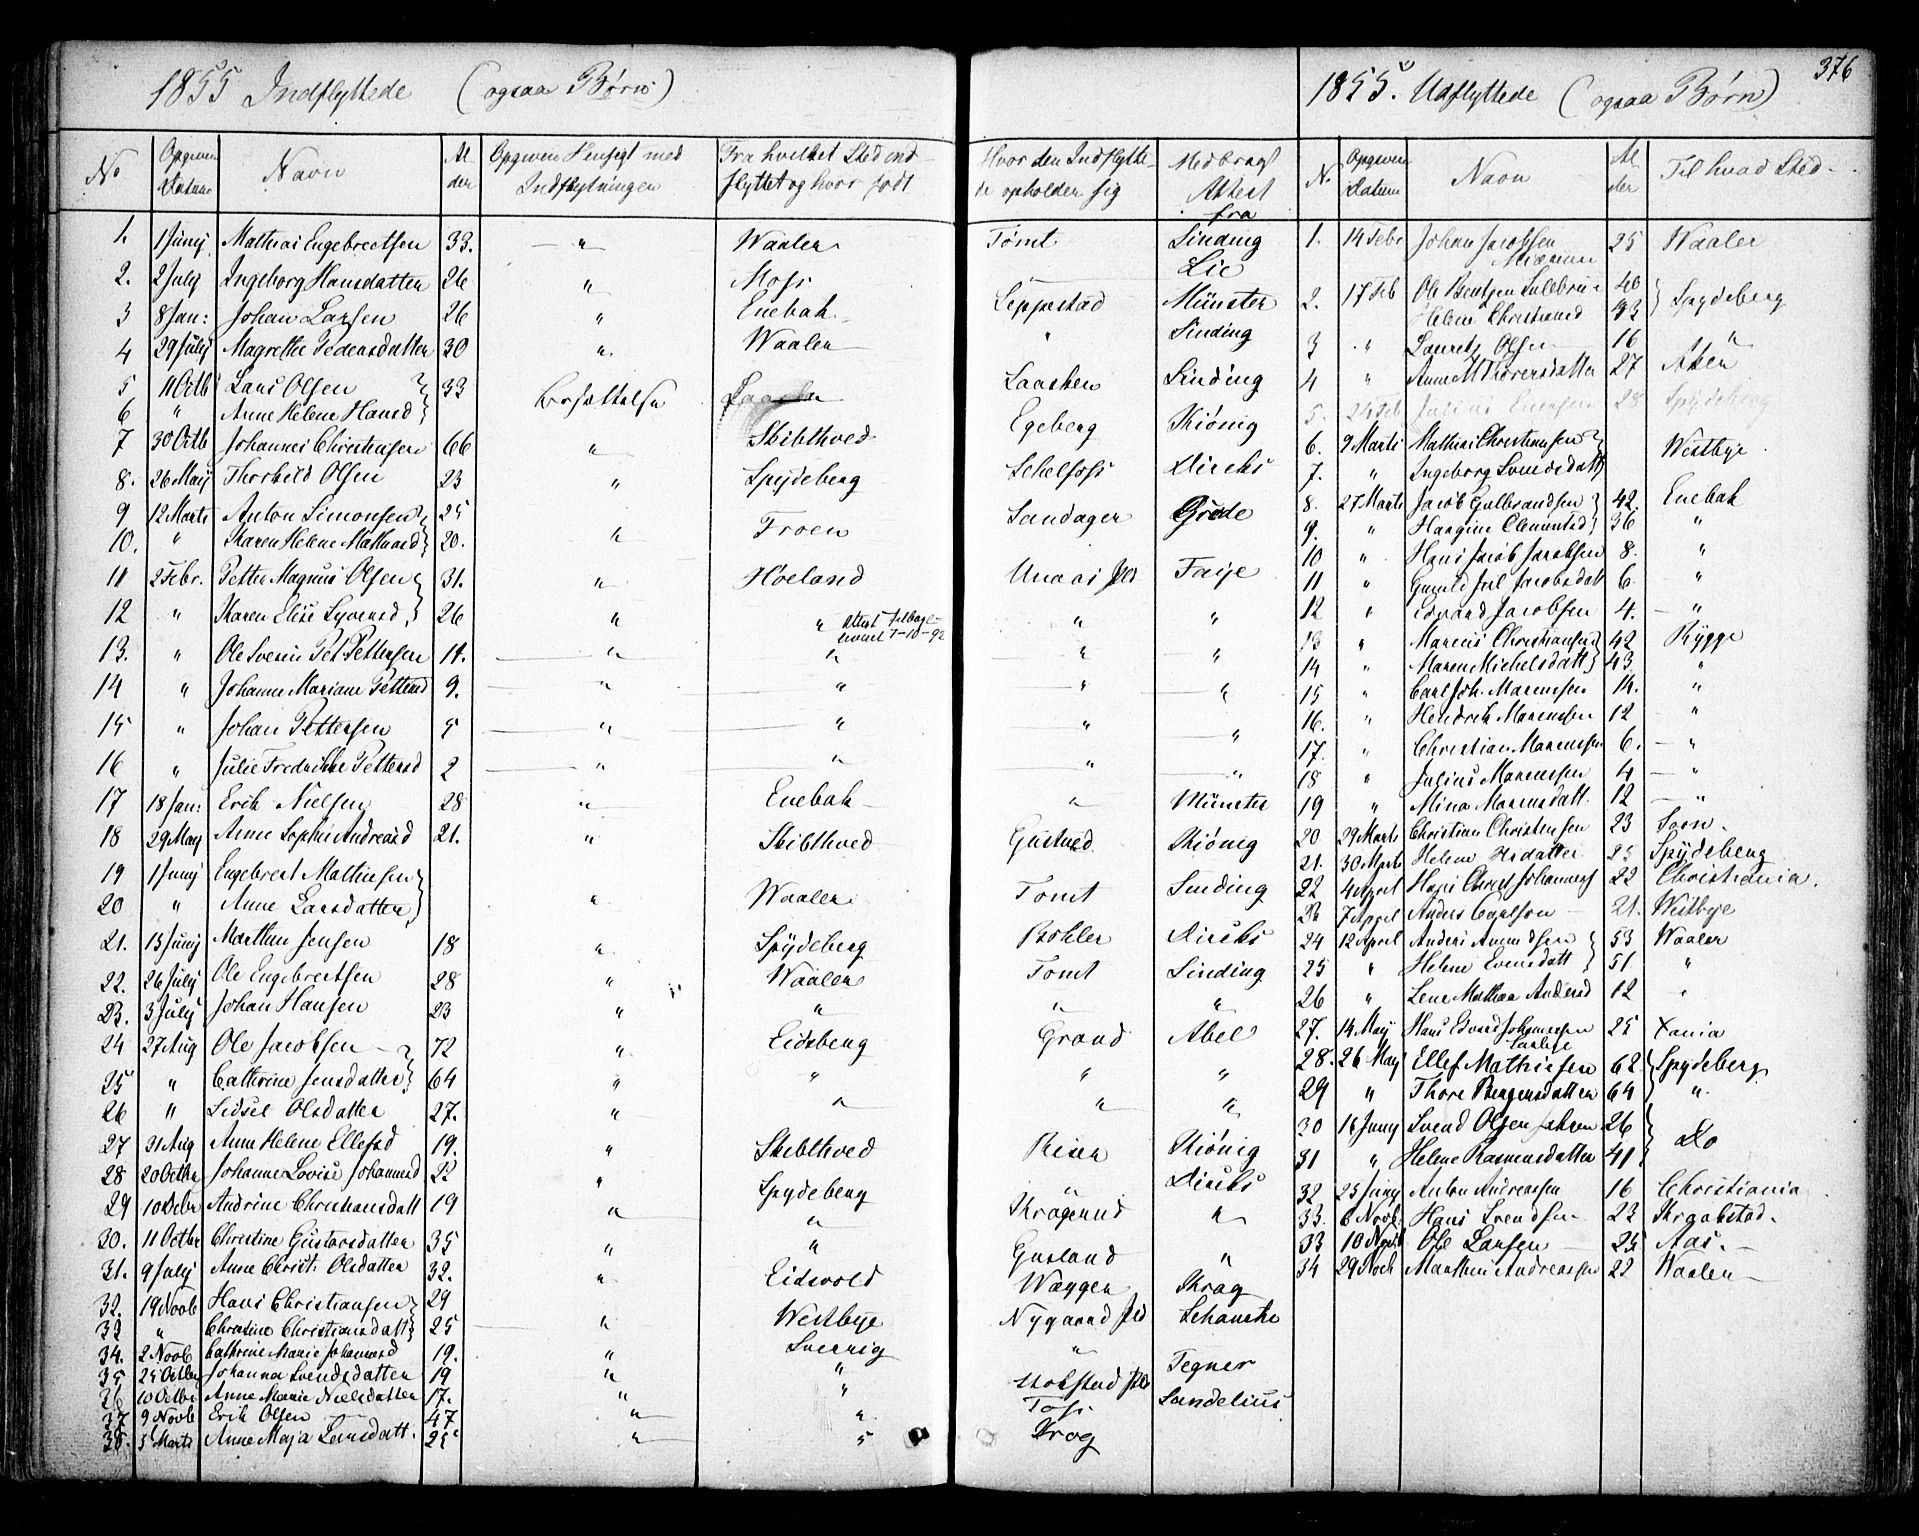 376
1855 Indflyttede (ogsaa Børn)
No | Opgiven Datum | Navn | Alder | Opgiven Hensigt med Indflytningen | Fra hvilket Sted indflyttet og hvor født | Hvor den Indflyttede opholder sig | Medbragt Attest fra
1. 1 Junij Mathias Engebretsen 33. " Waaler Tomt Sinding
2. 2 July Ingeborg Hansdatter 26 " Moss Lie
3 8 Jan: Johan Larsen 26 " Enebak Leppestad Münster
4 29 July Magrethe Pedersdatter 30 " Waaler " Sinding
5 11 Octb Lars Olsen 33 Laasken Sinding
6 " Anne Helene Hansd
7 30 Octb Johannes Christensen 66 " Skibthved Egeberg Kiönig
8. 26 May Thorkild Olsen 23 " Spydeberg Schelfoss Diriks
9 12 Marts Anton Simonsen 25 Sandager Grøde
10. " Karen Helene Mathiasd 20. " Froen
11 2 Febr. Petter Magnus Olsen 31. " Høeland Unaas Faije
12 " Karen Elise Syversd 26 " " Attest tilbage- 7-10-92 " "
13. " Ole Severin Pettersen 11. " " " "
14 " Johanne Mariane Pettersd 9. " " " "
15 " Johan Pettersen 5 " " " "
16 " Julie Fredrikke Pettersd 2 " " " "
17 18 Jan: Erik Nielsen 28 " Enebak " Münster
18 29 May Anne Sophie Andreasd 21. " Skibthved Gustued Kiönig
19 1 Junij Engebret Mathiesen
20 " Anne Larsdatter " Waaler Tomt Sinding
21. 15 Junij Marthin Jensen 18 " Spydeberg Bohler Diriks
22. 26 July Ole Engebretsen 28 " Waaler Tomt Sinding
23. 3 July Johan Hansen 23 " " " "
24 27 Aug Ole Jacobsen 72 " Eidsberg Grand Abel
25 " Cathrine Jensdatter 64 " " " "
26 " Sidsel Olsdatter 27. " " " "
27 31 Aug Anne Helene Ellefsd 19. " Skibthved Risen Kiönig
28 20 Octbr Johanne Lovise Johannesd 22 " Spydeberg " Diriks
29 10 Octbr Andrine Christiansdatt 19 " " "
30. 11 Octbr Christine Gustavsdatter 35 " " Gusland "
31. 9 July Anne Christ: Olsdatter 32. " Eidsvold Wæggen Krag
32. 19 Novb Hans Christiansen 29 " Westbye Nygaard Schanche
33 " Christine Christiansdatt 25
34. 2 Novb Cathrine Marie Johannesd 19. " Sverrig "
35 25 Octbr Johanna Svendsdatter 19 " " Tegner
36 10 Octbr Anne Marie Nielsdatter 17. " " Sandelius
37 9 Novb Erik Olsen 47 " " Foss
38. 5 Marts Anne Maja 25 " " Krog
1855. Udflyttede (ogsaa Børn)
N. | Opgiven Datum | Navn | Alder | Til hvad Sted
1. 14 Febr Johan Jacobsen 25 Waaler
2. 17 Feb Ole Bentsen 40 Spydeberg
Helene Christiansd 33
3 " Laurits Olsen 16 "
4 " Anne M Thoversdatter 27 Aken
5. 24 Feb Julius 28 Spydeberg
6. 9 Marts Mathias Christiansen Westbye
7. " Ingeborg Svendsdatt
8. 27 Marts Jacob Gulbrandsen 42. Enebak
9. " Haagine Clemetsd 36 "
10 " Hans Jacob Jacobsen 8. "
11 " Gunild Jul Jacobsdatt 6. "
12 " Edvard Jacobsen 4. "
13 " Marcus Christiansen 42 Rygge
14 " Maren Michelsdatt 43. "
15 " Carl Joh. Marcussen 14. "
16. " Hendrik Marcussen 12 "
17. " Christian Marcussen 6. "
18 " Julius Marcussen 4 "
19 " Mina Marcusdatt. 12 "
20 29 Marts Christian Christensen 23 Soon.
21. 30 Marts Helene 25 Spÿdeberg
22 4 April Hans Christ Johannes 22 Christiania.
23 7 Appel Anders Carlson 21. Westbye
24 12 April Anders Amundsen 53 Waaler
25 " Helene Evensdatt 51 "
26 " Lene Mathea Andersd 12 "
27. 14 May Hans Edvard Johannesen 25 Xania
28. 26 May Ellef Mathiesen 62 Spydeberg
29 " Thore Børgersdatter 64 "
30 16 Juny Svend Olsen 26 Do
31 " Helene Rasmusdatter 41
32 25 Juny Anton Andreassen 16 Christiania
33. 6 Novb. Hans Svendsen 23 Kraakstad.
33 10 Novb Ole Larsen 25 Aas.
34 29 Novb Marthin Andreassen 22 Waaler